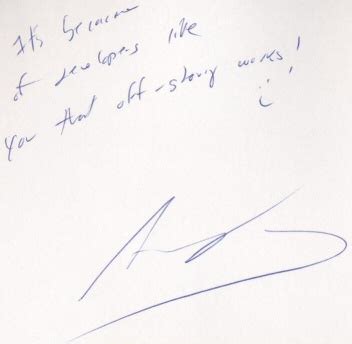 It's because
of developers like
you that off-shoring works!
:)